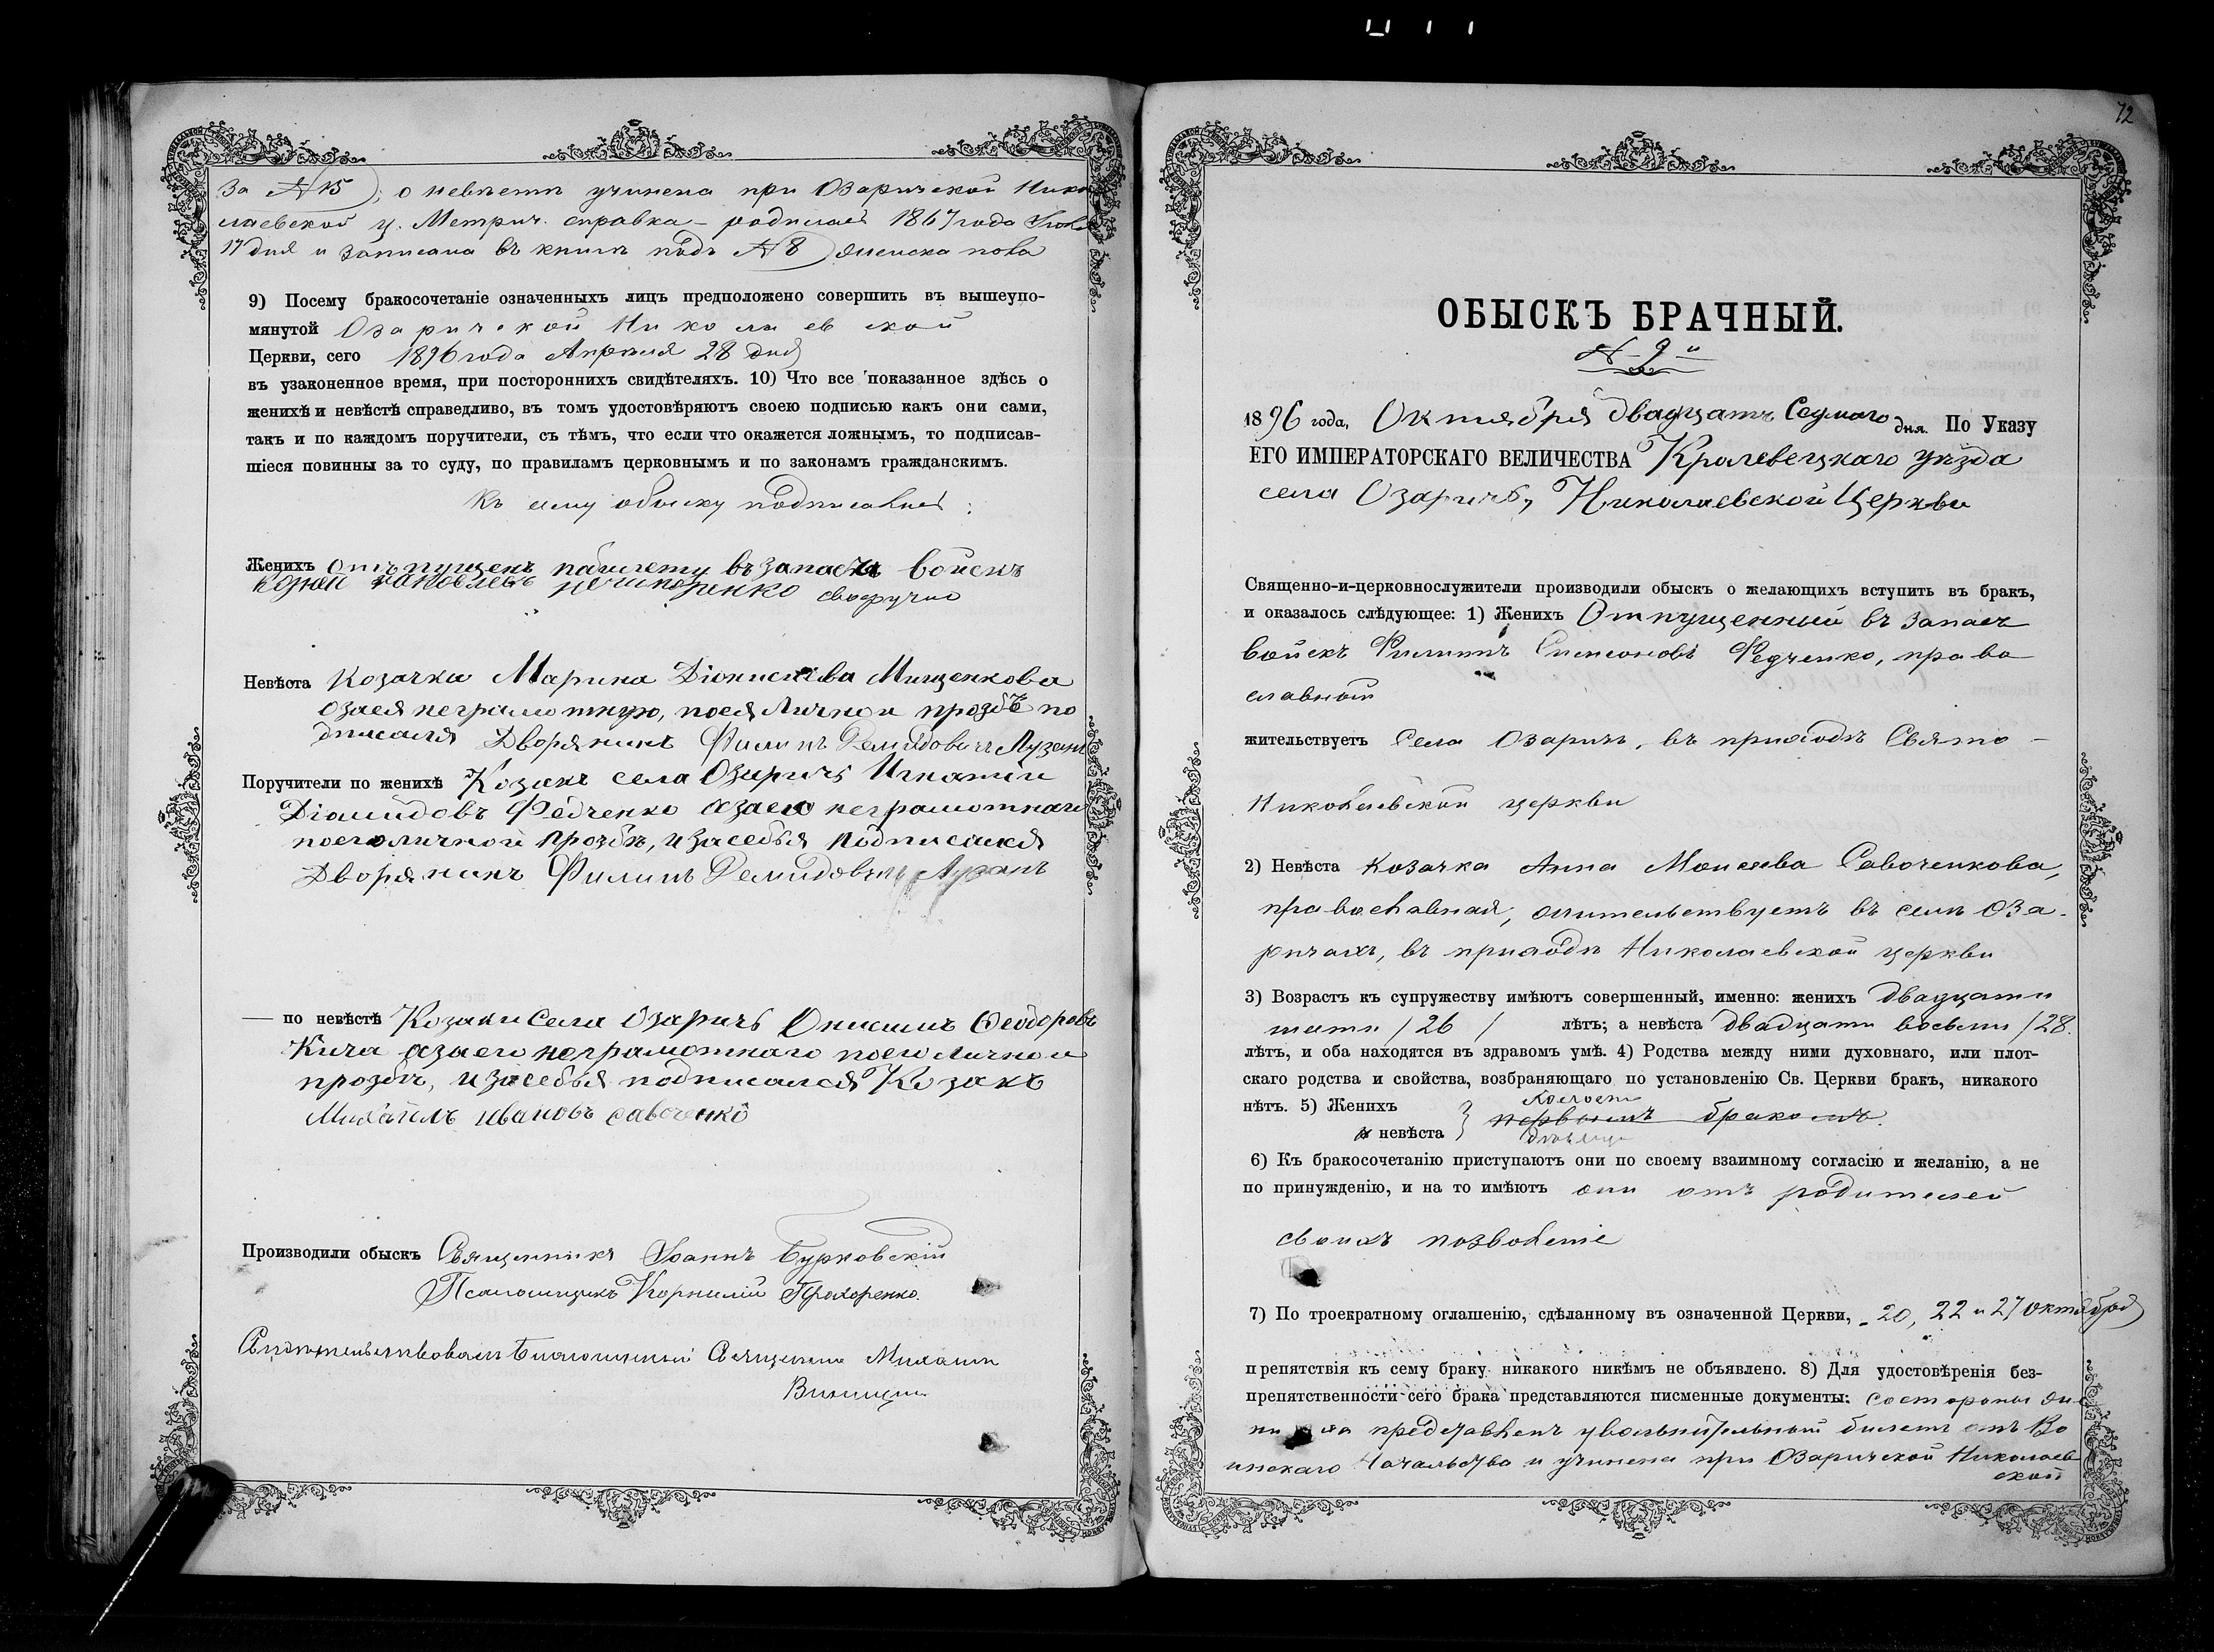 за №15); о невѣстѣ учинена при Озаричской Нико
лаевской ц. Метрич. справка – родилась 1867 года Іюля
17 дня и записана въ книгѣ подъ №8)
9) Посему бракосочетаніе означенныхъ лицъ предположено совершить въ вышеупо-
мянутой Озаричской Николаевской
Церкви, сего 1896 года Апрѣля 28 дня
въ узаконенное время, при постороннихъ свидѣтеляхъ. 10) Что все показанное здѣсь о
женихѣ и невѣстѣ справедливо, въ томъ удостовѣряютъ своею подписью какъ они сами,
такъ и по каждомъ поручители, съ тѣмъ, что если что окажется ложнымъ, то подписав-
шіеся повинны за то суду, по правиламъ церковнымъ и по законамъ гражданскимъ.
Къ сему обыску подписались:
Женихъ отъпущенъ пабилету въ запасъ войскъ
нечипоренко своручно
Невѣста Козачка Марина Діонисіева Мищенкова
озаея неграмотную, поея Личной прозбѣ по
дписался Дворянинъ Филипъ Демидовичъ Лузанъ
Поручители по женихѣ Козакъ села Озаричъ Игнатій
Діомидовъ Федченко азаего неграмотнаго
поеголичной прозбѣ, изасебя подписался
Дворянинъ Филипъ Демидовичъ Лузанъ
— по невѣстѣ Козаки Села Озаричъ Онисимъ Феодоровъ
Кича азаего неграмотнаго поего личной
прозбѣ, изасебя подписался Козакъ
Михаилъ ивановъ савоченко
Производили обыскъ Священникъ Іоаннъ Бурковскій
Псаломщикъ Корнилій Прохоренко.
Свидѣтельствовалъ Благочинный Священникъ Михаилъ
72
ОБЫСКЪ БРАЧНЫЙ.
№ 9й
1896 года, Октября двадцать Седмаго дня. По Указу
ЕГО ИМПЕРАТОРСКАГО ВЕЛИЧЕСТВА Кролевецкаго уѣзда
села Озаричъ, Николаевской Церкви
Священно-и-церковнослужители производили обыскъ о желающихъ вступить въ бракъ,
и оказалось слѣдующее: 1) Женихъ Отпущенный въ запасъ
войскъ Филиппъ Симоновъ Федченко, право
славный
жительствуетъ Села Озаричъ, въ приходѣ Свято –
Николаевской церкви
2) Невѣста Козачка Анна Моисеева Савоченкова,
православная, жительствуетъ въ селѣ Оза-
ричахъ, въ приходѣ Николаевской церкви
3) Возрастъ къ супружеству имѣютъ совершенный, именно: женихъ двадцати
шести /26/ лѣтъ; а невѣста двадцати восьми /28.
лѣтъ, и оба находятся въ здравомъ умѣ. 4) Родства между ними духовнаго, или плот-
скаго родства и свойства, возбраняющаго по установленію Св. Церкви бракъ, никакого
нѣтъ. 5) Женихъ холостъ
первымъ бракомъ.
и невѣста дѣвица
6) Къ бракосочетанію приступаютъ они по своему взаимному согласію и желанію, а не
по принужденію, и на то имѣютъ они отъ родителей
своихъ позволеніе
7) По троекратному оглашенію, сдѣланному въ означенной Церкви, 20, 22 и 27 октября
препятствія къ сему браку никакого никѣмъ не объявлено. 8) Для удостовѣренія без-
препятственности сего брака представляются писменные документы: состороны же-
ниха представленъ увольнительный билетъ отъ Во
инскаго Начальства и учинена при Озаричской Николаев
ской